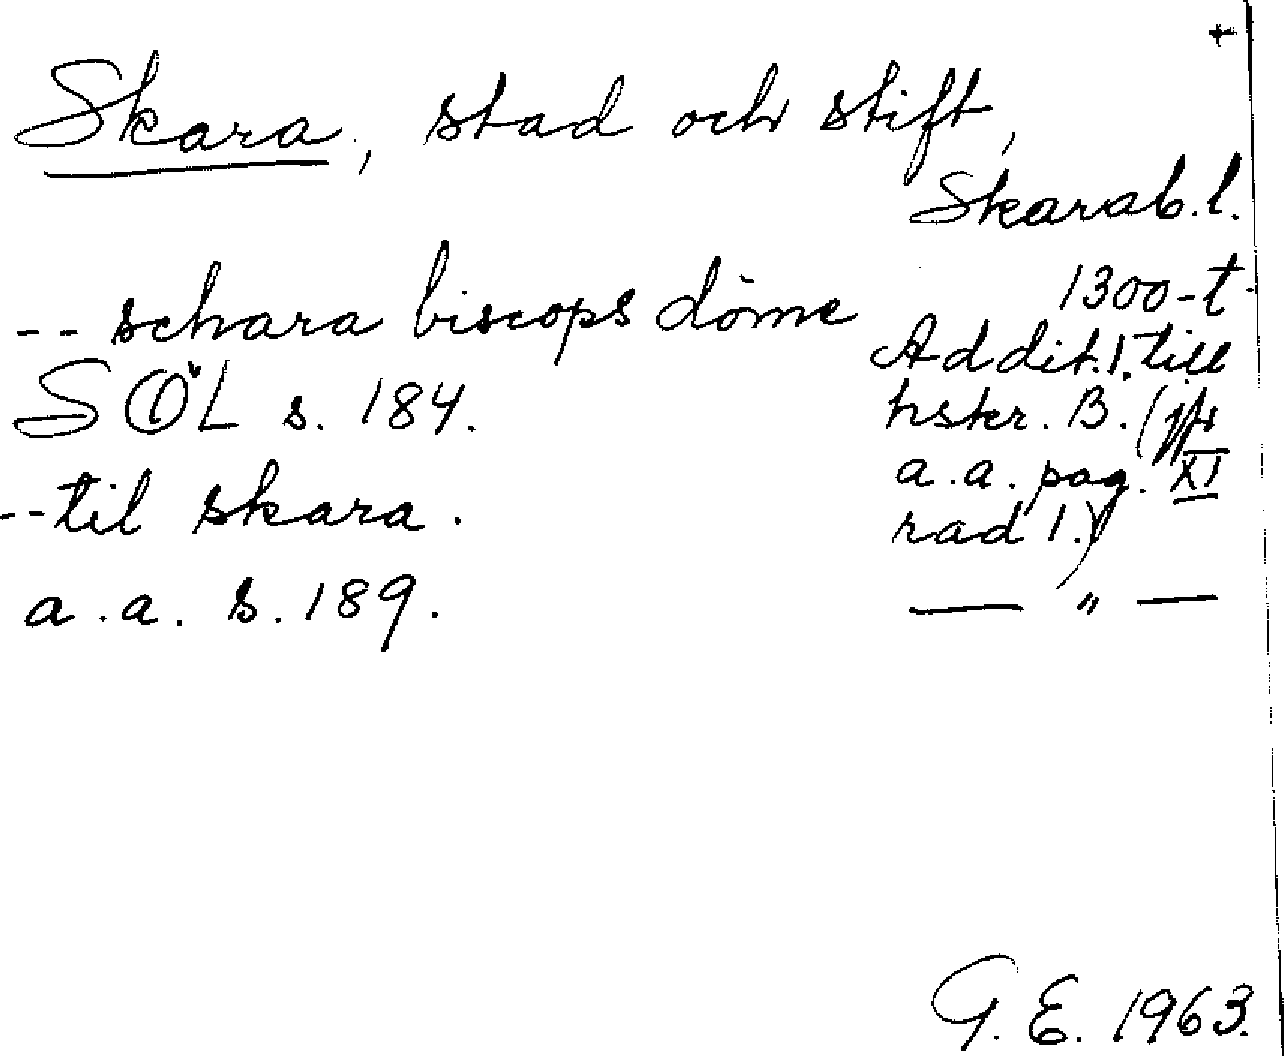 +
Skara, stad och stift,
Skarab.l.
-- schara biscops döme
1300-t.
SÖL s. 184.
Addit. 1. till
hskr. B. (jfr
a.a. pag. XI
rad 1.)
--til skara.
a.a. s. 189.
— " —
G. E. 1963.